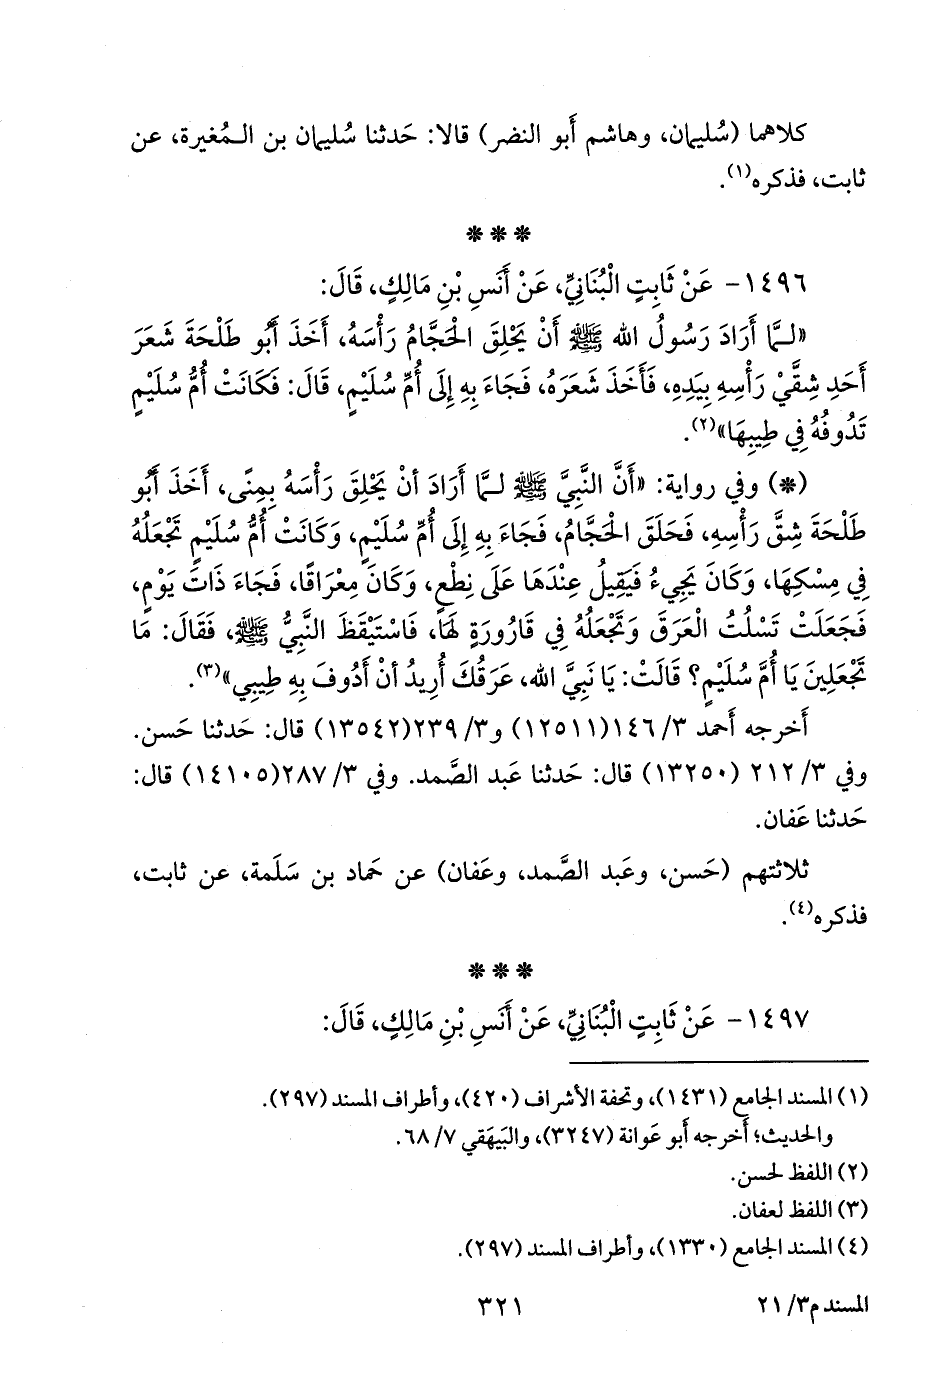 كلاهما (سُليمان، وهاشم أَبو النضر) قالا: حَدثنا سُليمان بن الـمُغيرة، عن
ثابت، فذكره(١).
***
١٤٩٦- عَنْ ثَابِتٍ الْبُنَانِيِّ، عَنْ أَنَسِ بْنِ مَالِكٍ، قَالَ:
«لـمَّا أَرَادَ رَسُولُ الله ﷺ أَنْ يَحْلِقَ الْحَجَّامُ رَأْسَهُ، أَخَذَ أَبُو طَلْحَةَ شَعَرَ
أَحَدِ شِقَّيْ رَأْسِهِ بِيَدِهِ، فَأَخَذَ شَعَرَهُ، فَجَاءَ بِهِ إِلَى أُمِّ سُلَيْمٍ، قَالَ: فَكَانَتْ أُمُّ سُلَيْمٍ
تَدُوفُهُ فِي طِيبِهَا»(٢).
(*) وفي رواية: «أَنَّ النَّبِيَّ ﷺ لـمَّا أَرَادَ أَنْ يَحْلِقَ رَأْسَهُ بِمِنًى، أَخَذَ أَبُو
طَلْحَةَ شِقَّ رَأْسِهِ، فَحَلَقَ الْحَجَّامُ، فَجَاءَ بِهِ إِلَى أُمِّ سُلَيْمٍ، وَكَانَتْ أُمُّ سُلَيْمٍ تَجْعَلُهُ
فِي مِسْكِهَا، وَكَانَ يَجِيءُ فَيَقِيلُ عِنْدَهَا عَلَى نِطْعٍ، وَكَانَ مِعْرَاقًا، فَجَاءَ ذَاتَ يَوْمٍ،
فَجَعَلَتْ تَسْلُتُ الْعَرَقَ وَتَجْعَلُهُ فِي قَارُورَةٍ لَهَا، فَاسْتَيْقَظَ النَّبِيُّ ﷺ، فَقَالَ: مَا
تَجْعَلِينَ يَا أُمَّ سُلَيْمٍ؟ قَالَتْ: يَا نَبِيَّ الله، عَرَقُكَ أُرِيدُ أَنْ أَدُوفَ بِهِ طِيبِي»(٣).
أَخرجه أَحمد ٣/ ١٤٦(١٢٥١١) و٣/ ٢٣٩(١٣٥٤٢) قال: حَدثنا حَسن.
وفي ٣/ ٢١٢ (١٣٢٥٠) قال: حَدثنا عَبد الصَّمد. وفي ٣/ ٢٨٧(١٤١٠٥) قال:
حَدثنا عَفان.
ثلاثتهم (حَسن، وعَبد الصَّمد، وعَفان) عن حَماد بن سَلَمة، عن ثابت،
فذكره(٤).
***
١٤٩٧- عَنْ ثَابِتٍ الْبُنَانِيِّ، عَنْ أَنَسِ بْنِ مَالِكٍ، قَالَ:
(١) المسند الجامع (١٤٣١)، وتحفة الأشراف (٤٢٠)، وأطراف المسند (٢٩٧).
والحديث؛ أَخرجه أَبو عَوانة (٣٢٤٧)، والبَيهَقي ٧/ ٦٨.
(٢) اللفظ لحسن.
(٣) اللفظ لعفان.
(٤) المسند الجامع (١٣٣٠)، وأطراف المسند (٢٩٧).
المسند م٣/ ٢١
٣٢١